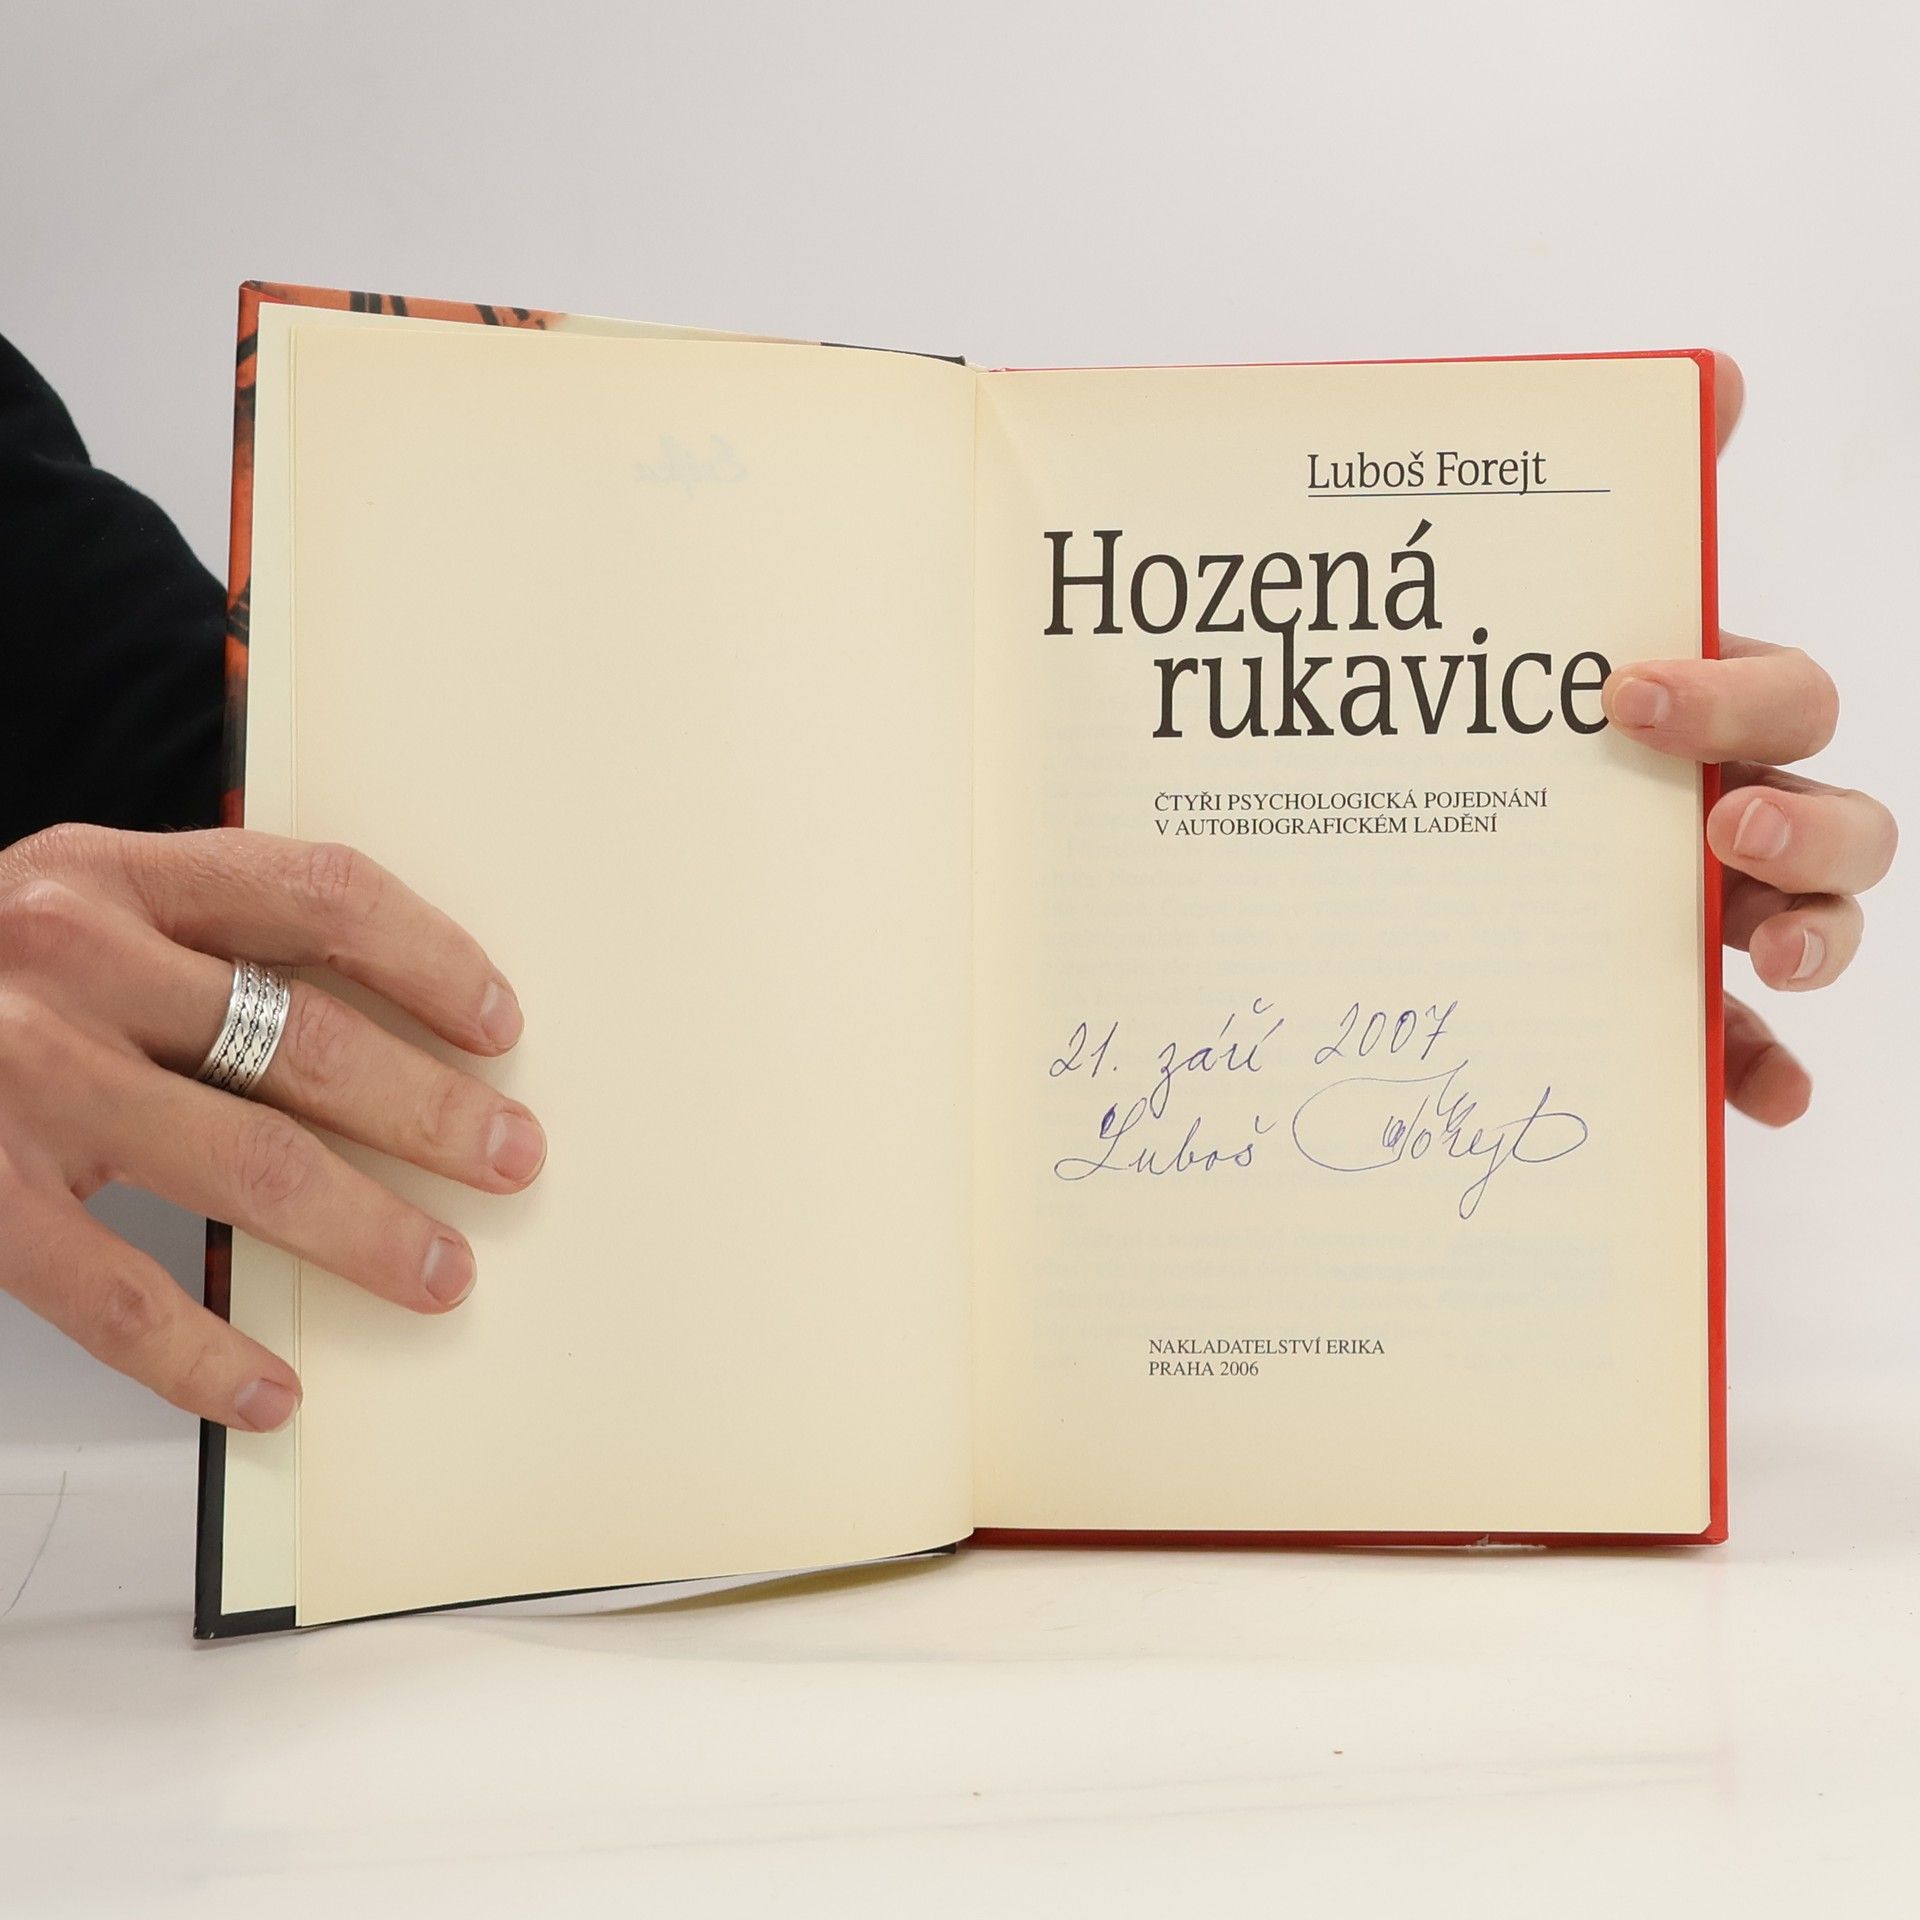 Luboš Forejt
Hozená
rukavice
ČTYŘI PSYCHOLOGICKÁ POJEDNÁNÍ
V AUTOBIOGRAFICKÉM LADĚNÍ
21. září 2007
Luboš Forejt
NAKLADATELSTVÍ ERIKA
PRAHA 2006